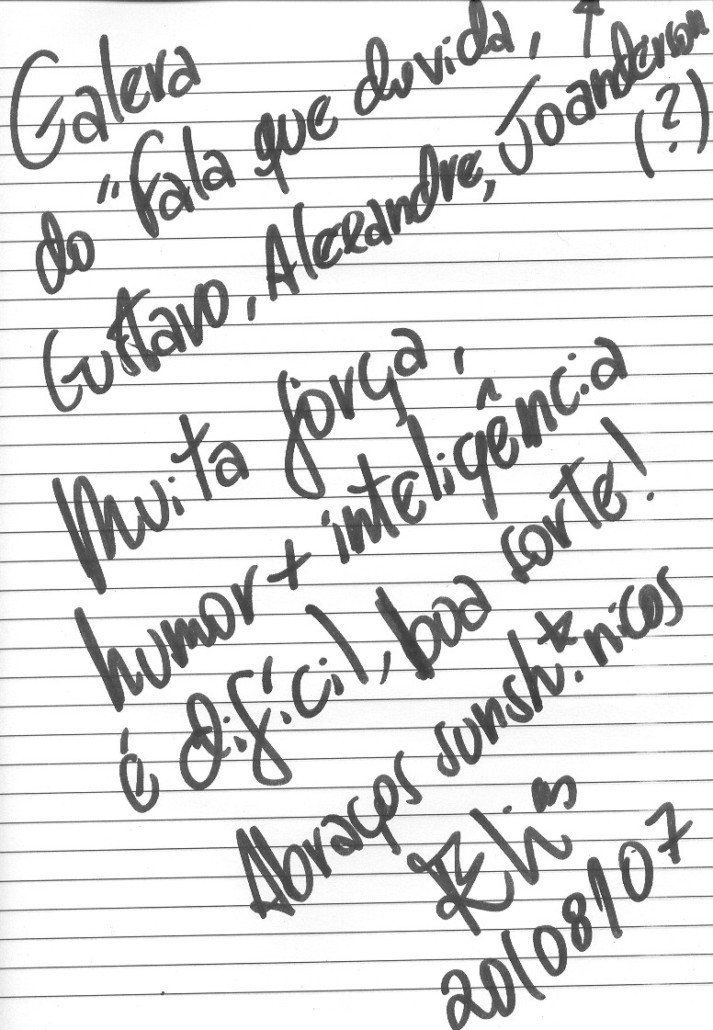 Galera
do "Fala que duvida, ↑
Gustavo, Alexandre, Joanderson
(?)
Muita força,
humor + inteligência
é difícil, boa sorte!
Abraços sunshinicos
20/08/07